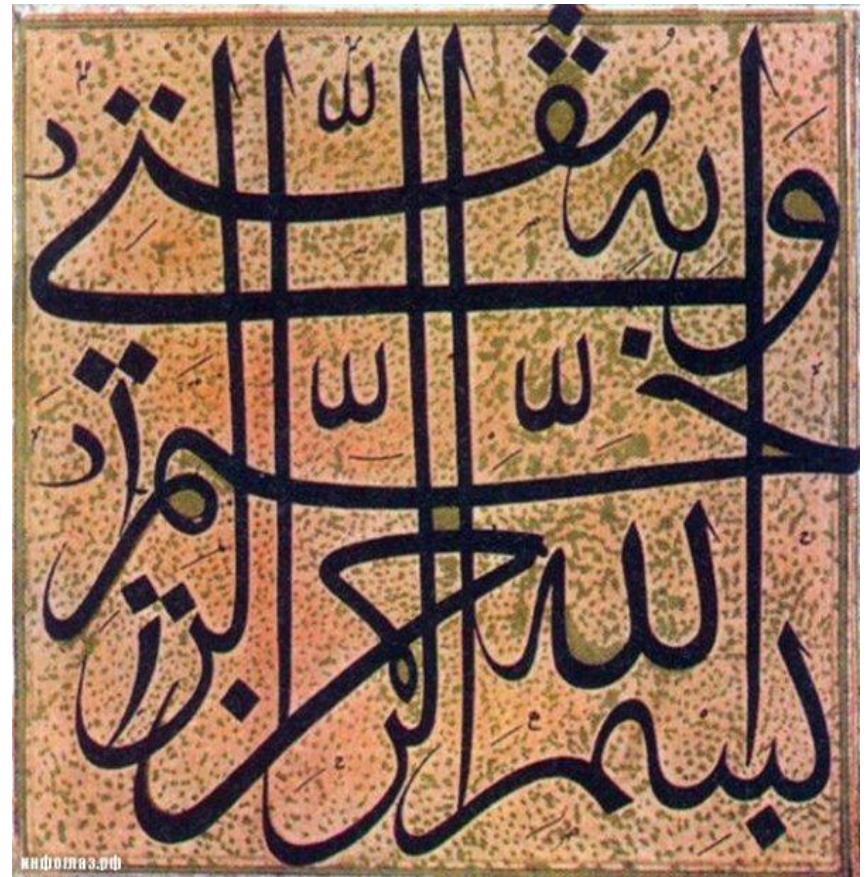 بسم الله الرحمن الرحيم
وبه ثقتي
инфоглаз.рф